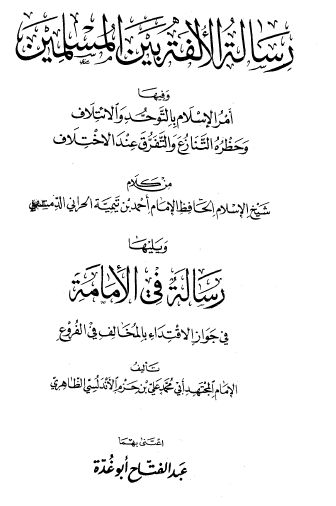 رسالة الألفة بين المسلمين
وفيها
أمر الإسلام بالتوحد والائتلاف
وحظره التنازع والتفرق عند الاختلاف
من كلام
شيخ الإسلام الحافظ الإمام أحمد بن تيمية الحراني الدمشقي
ويليها
رسالة في الإمامة
في جواز الاقتداء بالمخالف في الفروع
تأليف
الإمام المجتهد أبي محمد علي بن حزم الأندلسي الظاهري
اعتنى بهما
عبد الفتاح أبو غدة